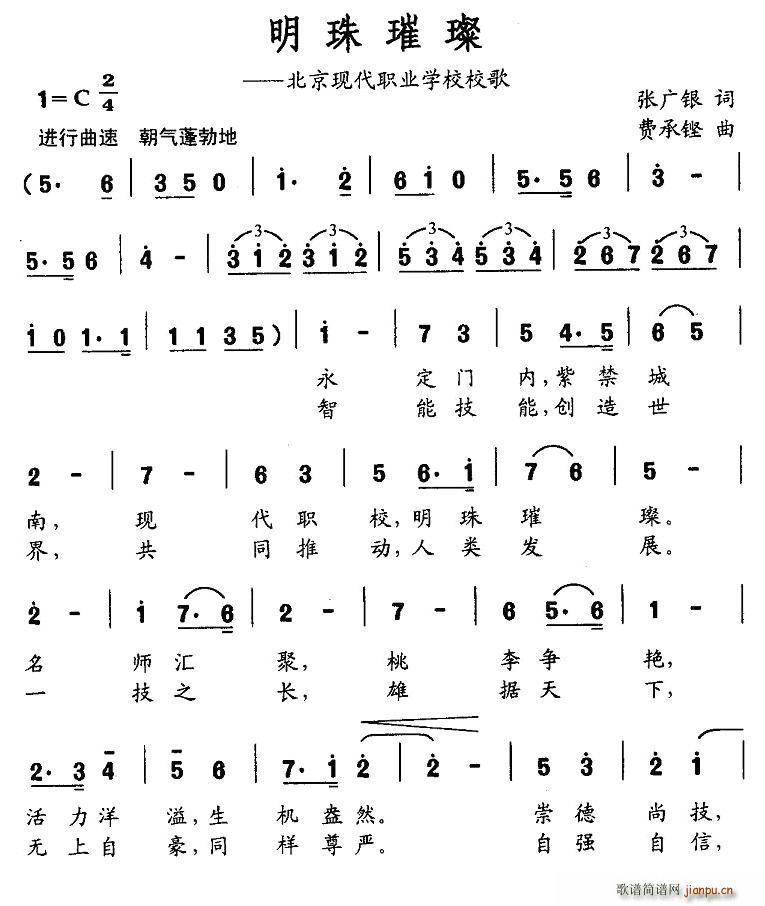 明珠璀璨
——北京现代职业学校校歌
1=C 2/4
张广银 词
进行曲速 朝气蓬勃地
费承铿 曲
(5· 6 | 3 5 0 | i· 2̇ | 6 i 0 | 5·5 6 | 3̇ - |
5·5 6 | 4̇ - | 3̇ i 2̇ 3̇ i 2̇ | 5̇ 3̇ 4̇ 5̇ 3̇ 4̇ | 2̇ 6 7 2̇ 6 7 |
i 0 1·1 | 1 1 3 5) | i - | 7 3 | 5 4·5 | 6 5 |
永 定门 内,紫禁 城
智 能技 能,创造 世
2 - | 7 - | 6 3 | 5 6·i | 7 6 | 5 - |
南, 现 代职 校,明珠 璀 璨。
界, 共 同推 动,人类 发 展。
2̇ - | i 7·6 | 2 - | 7 - | 6 5·6 | 1 - |
名 师汇 聚, 桃 李争 艳,
一 技之 长, 雄 据天 下,
2·3 4 | 5 6 | 7·i 2̇ | 2̇ - | 5 3̇ | 2̇ i |
活力洋 溢,生 机盎然。 崇德 尚技,
无上自 豪,同 样尊严。 自强 自信,
歌谱简谱网 jianpu.cn